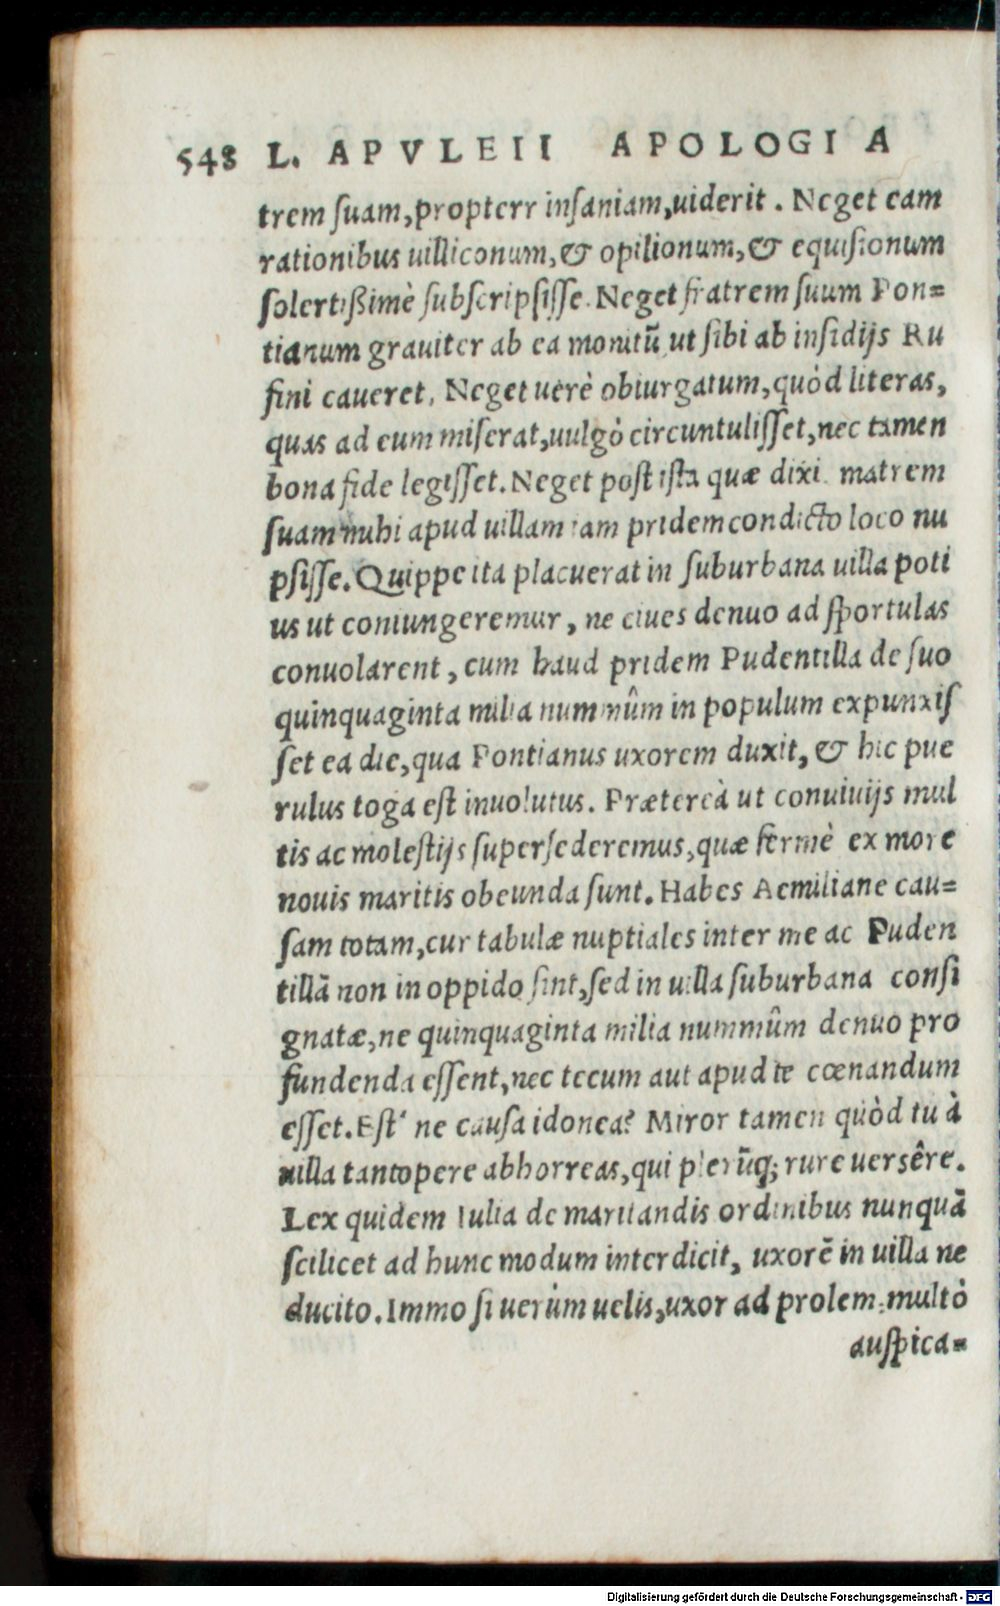 548 L. APVLEII APOLOGIA
trem suam, propterr insaniam, uiderit. Neget eam
rationibus uilliconum, & opilionum, & equisionum
solertißimè subscripsisse. Neget fratrem suum Pon=
tianum grauiter ab ea monitũ ut sibi ab insidijs Ru
fini caueret. Neget uerè obiurgatum, quòd literas,
quas ad eum miserat, uulgò circuntulisset, nec tamen
bona fide legisset. Neget post ista quæ dixi matrem
suam mihi apud uillam iam pridem condicto loco nu
psisse. Quippe ita placuerat in suburbana uilla poti
us ut coniungeremur, ne ciues denuo ad sportulas
conuolarent, cum haud pridem Pudentilla de suo
quinquaginta milia nummûm in populum expunxis
set ea die, qua Pontianus uxorem duxit, & hic pue
rulus toga est inuolutus. Prætereà ut conuiuijs mul
tis ac molestijs supersederemus, quæ fermè ex more
nouis maritis obeunda sunt. Habes Aemiliane cau=
sam totam, cur tabulæ nuptiales inter me ac Puden
tillã non in oppido sint, sed in uilla suburbana consi
gnatæ, ne quinquaginta milia nummûm denuo pro
fundenda essent, nec tecum aut apud te cœnandum
esset. Est' ne causa idonea? Miror tamen quòd tu à
uilla tantopere abhorreas, qui plerũq; rure uersêre.
Lex quidem Iulia de maritandis ordinibus nunquã
scilicet ad hunc modum interdicit, uxorẽ in uilla ne
ducito. Immo si uerùm uelis, uxor ad prolem, multò
auspica=
Digitalisierung gefördert durch die Deutsche Forschungsgemeinschaft - DFG